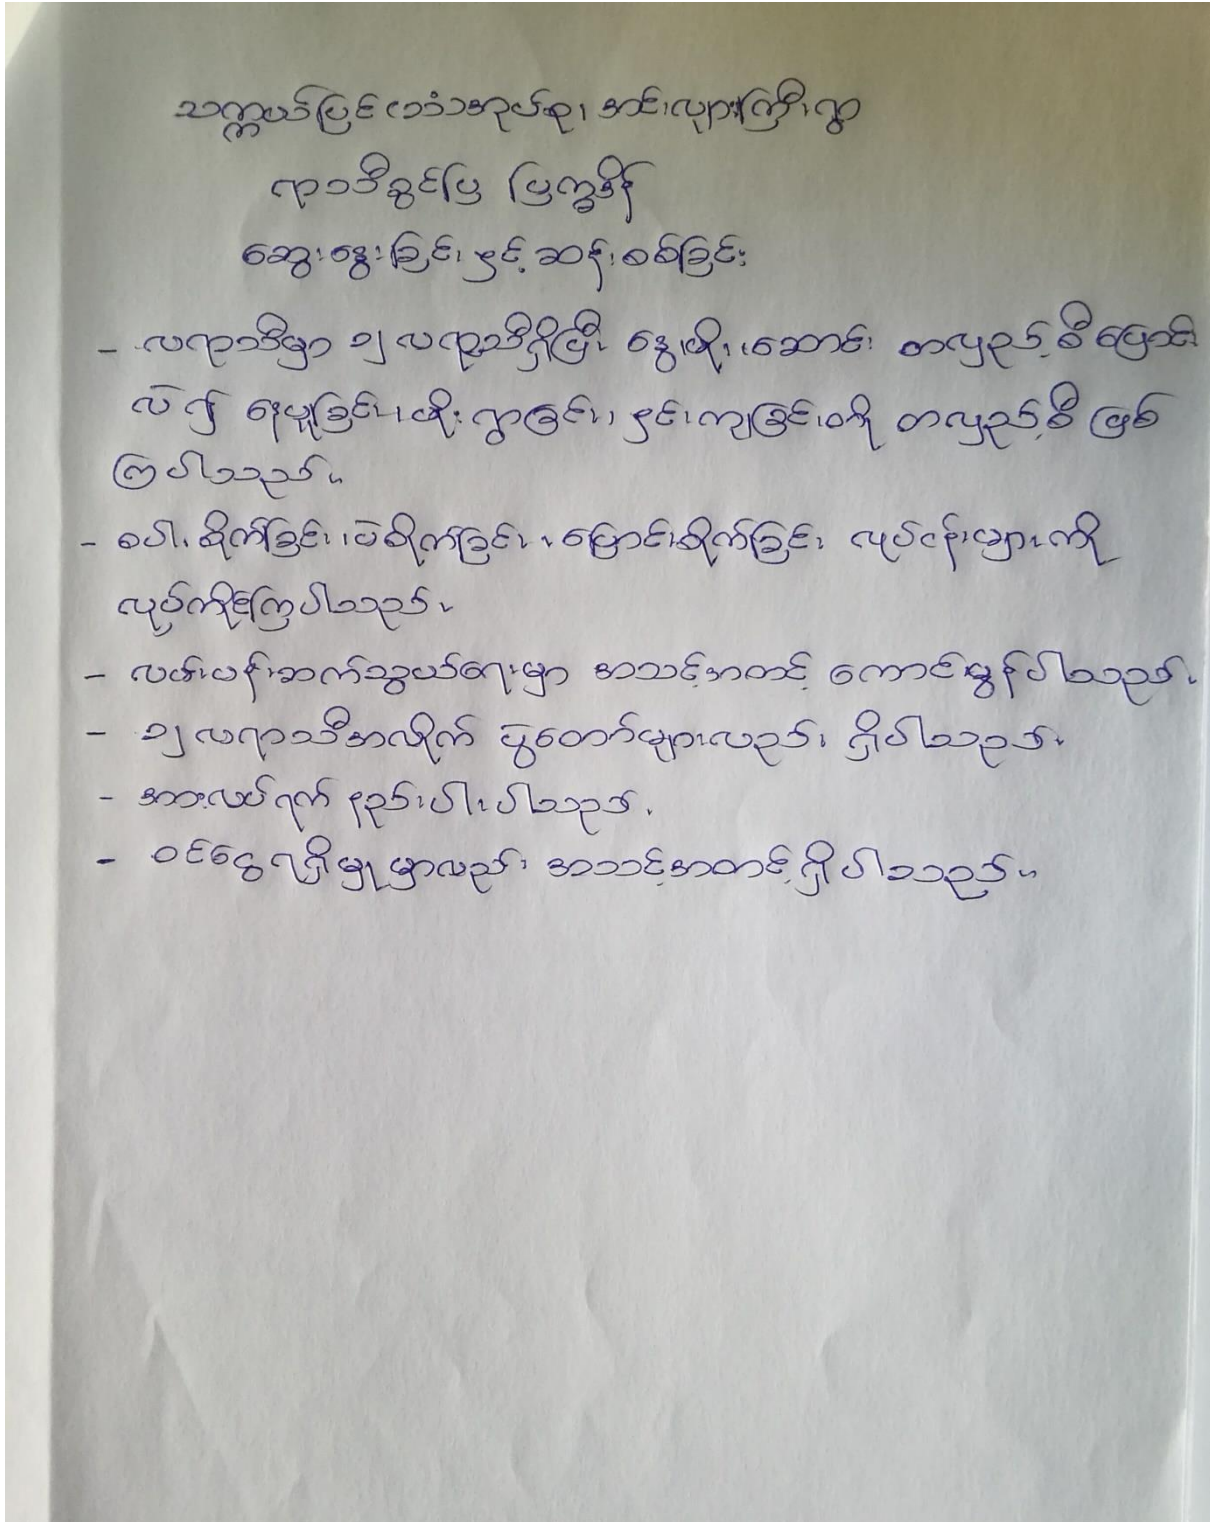 သက္ကယ်ပြင် အုပ်စု၊ အင်းလျားကြီးရွာ
ရာသီခွင်ပြ ပြက္ခဒိန်
ဆွေးနွေးခြင်း နှင့် ဆန်းစစ်ခြင်း
- လရာသီမှာ ၁၂ လရာသီရှိပြီး နွေ၊ မိုး၊ ဆောင်း တလှည့်စီ ပြောင်း
လဲ ၍ နေပူခြင်း၊ မိုးရွာခြင်း၊ နှင်းကျခြင်းတို့ တလှည့်စီ ဖြစ်
ကြပါသည်။
- စပါးစိုက်ခြင်း၊ ပဲစိုက်ခြင်း၊ ပြောင်းစိုက်ခြင်း လုပ်ငန်းများကို
လုပ်ကိုင်ကြပါသည်။
- လမ်းပန်းဆက်သွယ်ရေးမှာ အသင့်အတင့် ကောင်းမွန်ပါသည်။
- ၁၂ လရာသီအလိုက် ပွဲတော်များလည်း ရှိပါသည်။
- အားလပ်ရက် နည်းပါးပါသည်။
- ဝင်ငွေရရှိမှု မှာလည်း အသင့်အတင့် ရှိပါသည်။